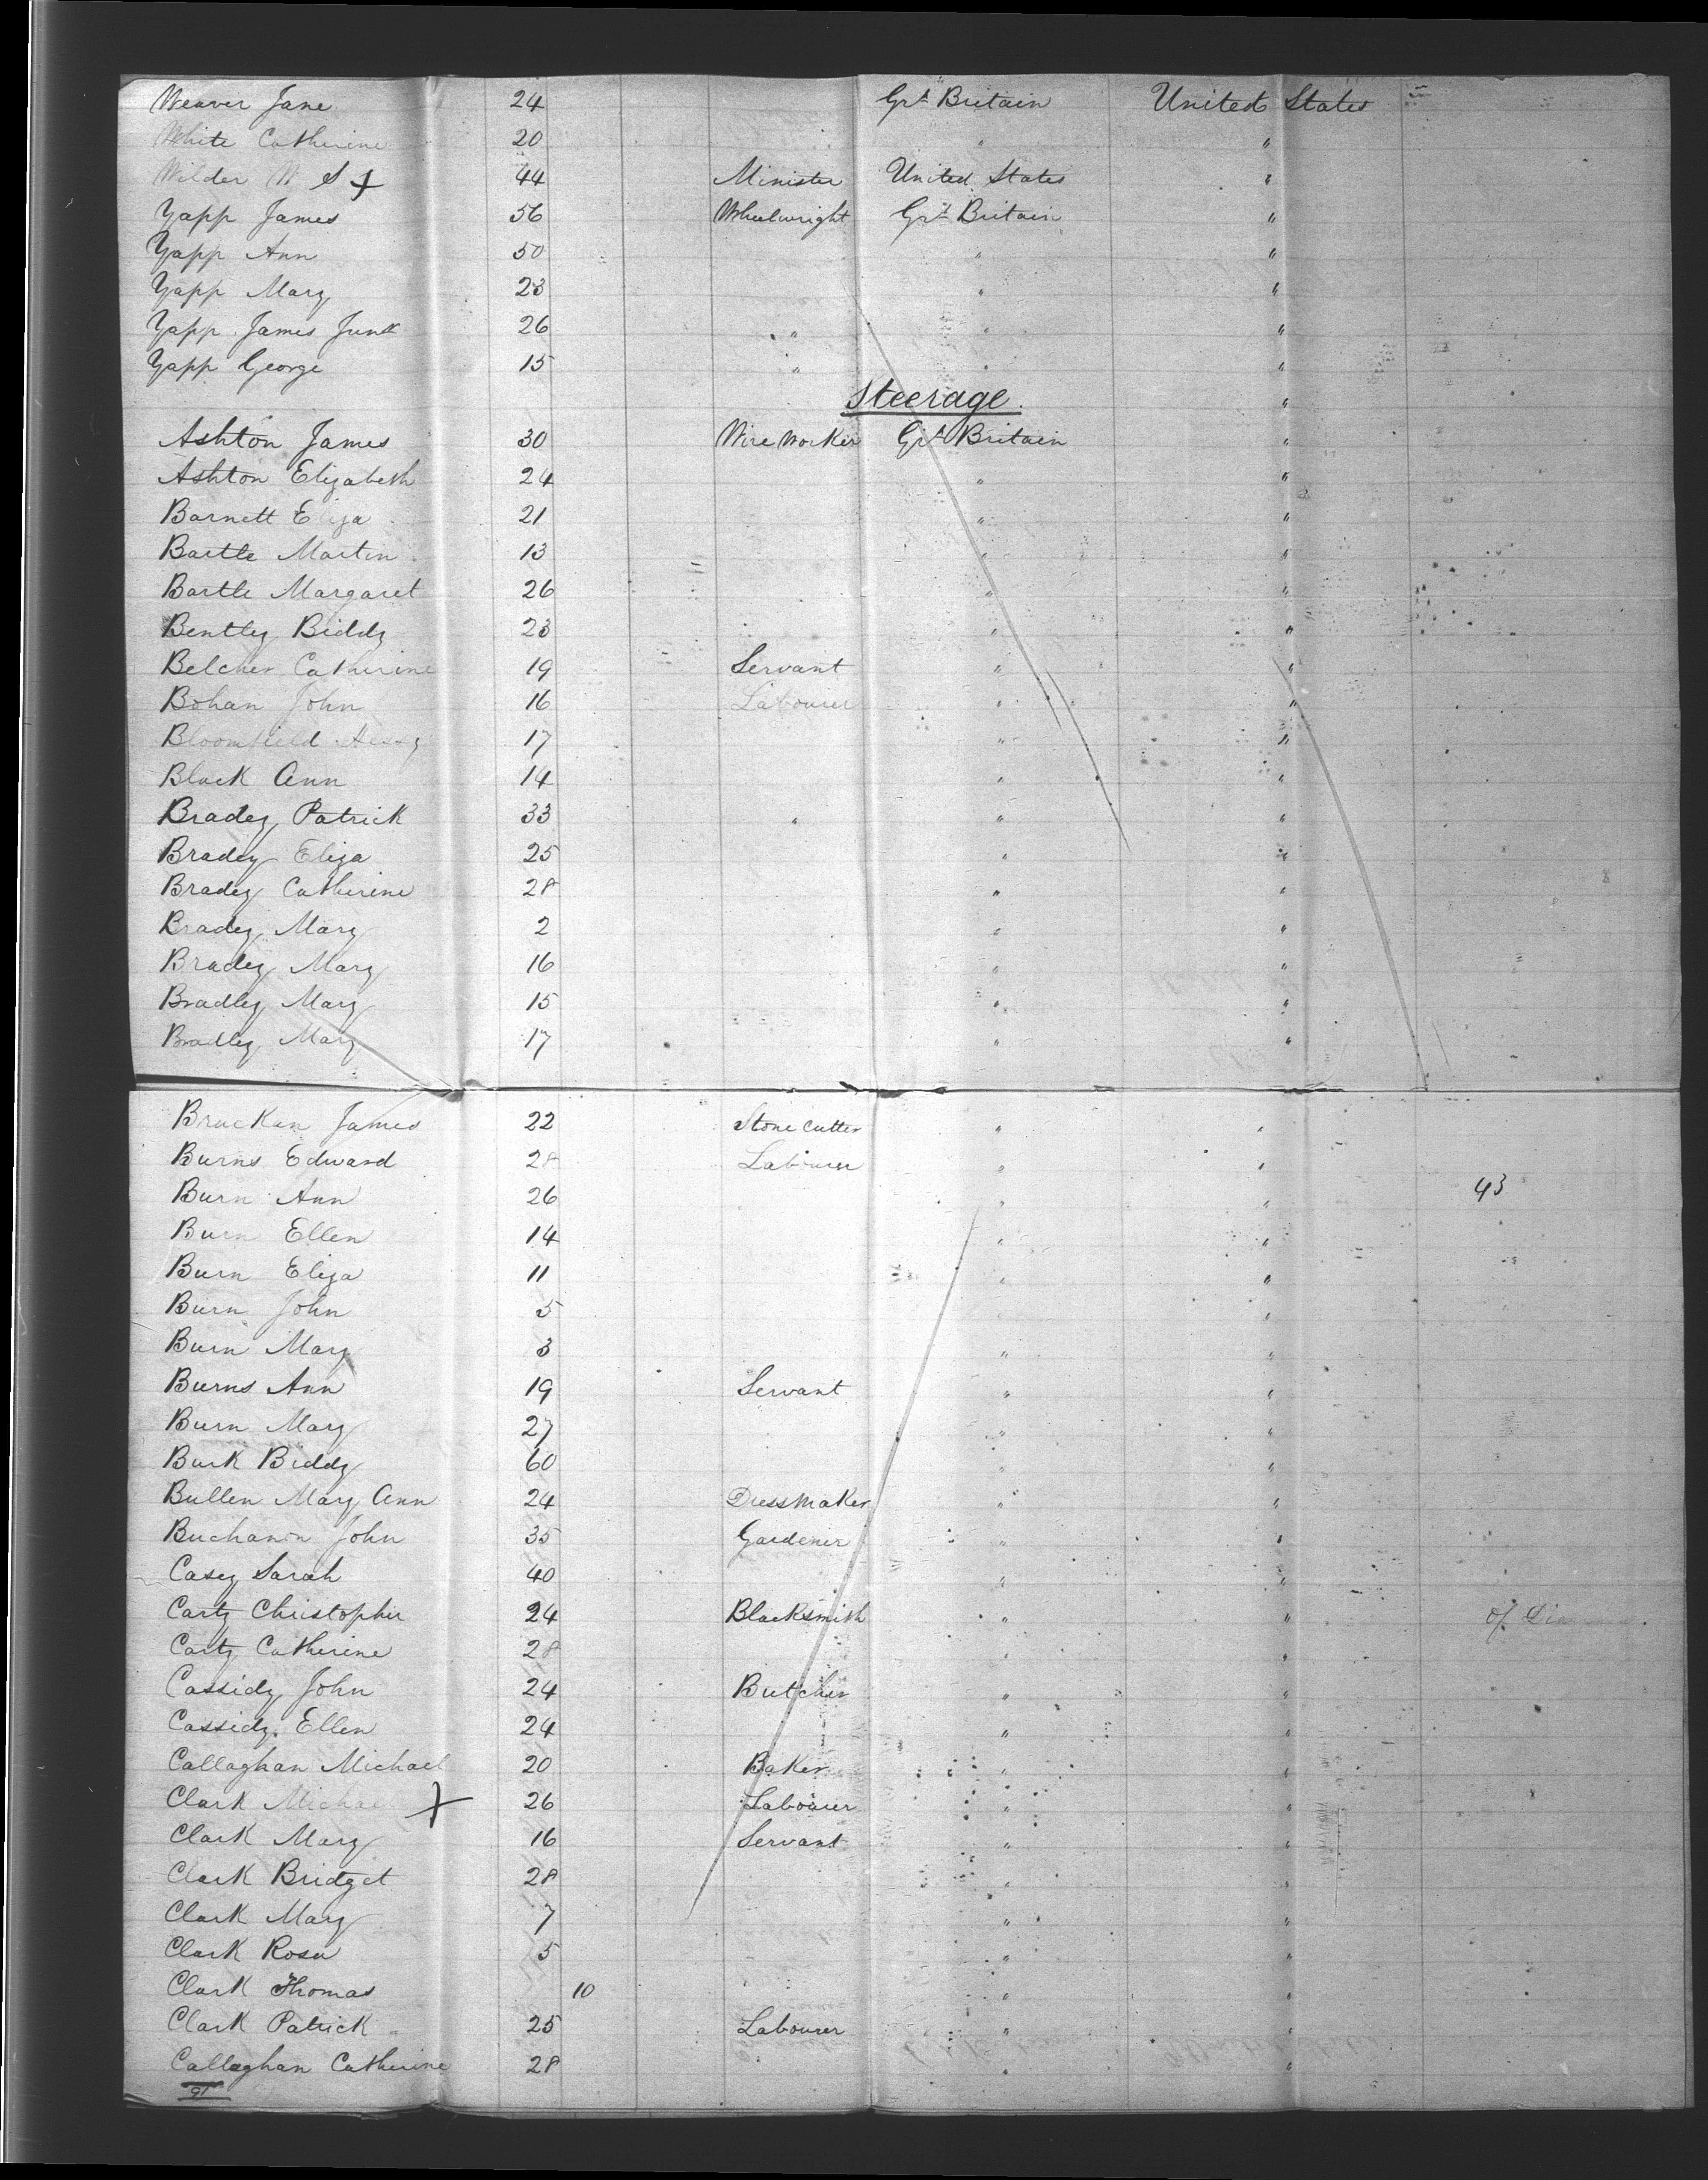 Weaver Jane 24 Grt Britain United States
White Catherine 20 " "
Wilder W S + 44 Minister United States "
Yapp James 56 Wheelwright Grt Britain "
Yapp Ann 50 " "
Yapp Mary 23 " "
Yapp James Junr 26 " " "
Yapp George 15 " " "
Steerage. "
Ashton James 30 Wire Worker Grt Britain "
Ashton Elizabeth 24 " "
Barnett Eliza 21 " "
Bartle Martin 13 " "
Bartle Margaret 26 " "
Bentley Biddy 23 " "
Belcher Catherine 19 Servant " "
Bohan John 16 Labourer " "
Bloomfield Hessy 17 " "
Black Ann 14 " "
Bradey Patrick 33 " " "
Bradey Eliza 25 " "
Bradey Catherine 28 " "
Bradey Mary 2 " "
Bradey Mary 16 " "
Bradley Mary 15 " "
Bradley Mary 17 " "
Bracken James 22 Stone Cutter " "
Burns Edward 28 Labourer " "
Burn Ann 26 " " 43
Burn Ellen 14 " "
Burn Eliza 11 " "
Burn John 5 " "
Burn Mary 3 " "
Burns Ann 19 Servant " "
Burn Mary 27 " "
Burk Biddy 60 " "
Bullen Mary Ann 24 Dressmaker " "
Buchanan John 35 Gardener " "
Casey Sarah 40 " "
Carty Christopher 24 Blacksmith " " of
Carty Catherine 28 " "
Cassidy John 24 Butcher " "
Cassidy Ellen 24 " "
Callaghan Michael 20 Baker " "
Clark Michael + 26 Labourer " "
Clark Mary 16 Servant " "
Clark Bridget 28 " "
Clark Mary 7 " "
Clark Rosa 5 " "
Clark Thomas 10 " "
Clark Patrick 25 Labourer " "
Callaghan Catherine 28 " "
91